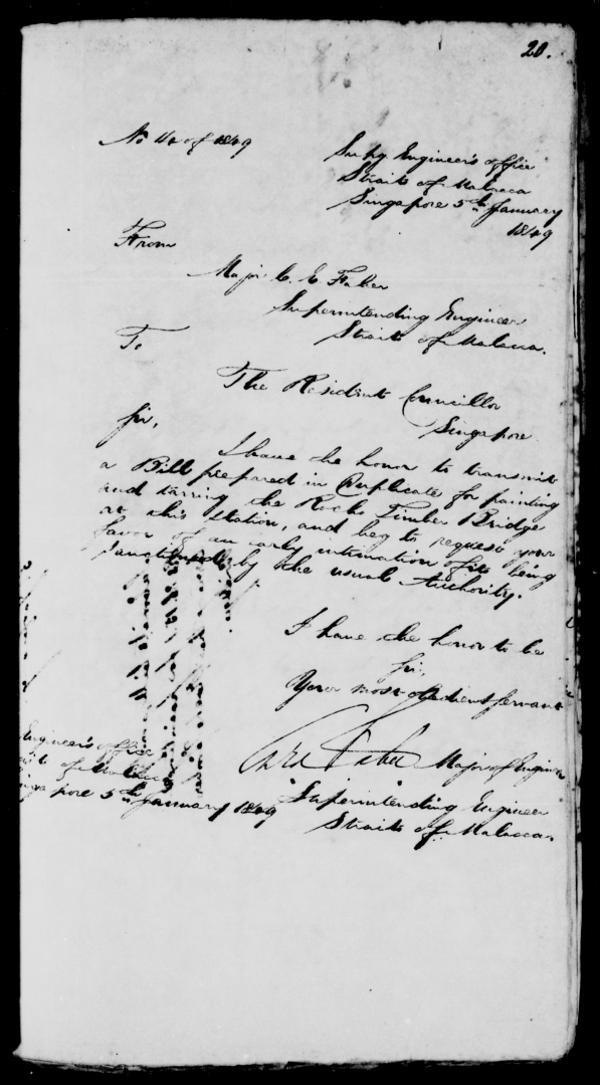 20.
No 4 of 1849
Suptg Engineer's office
Straits of Malacca
Singapore 5th January
1849
From
Major C. E. Faber
Superintending Engineer
Straits of Malacca.
To
The Resident Councillor
Singapore
Sir,
I have the honor to transmit
a Bill prepared in Duplicate for painting
and tarring the Rocho Timber Bridge
at this Station, and beg to request your
favor of an early intimation of its being
sanctioned by the usual Authority.
I have the honor to be
Sir,
Your most obedient servant
Faber Major of Engineers
Superintending Engineer
Straits of Malacca.
Engineer's office
of Malacca
pore 5th January 1849